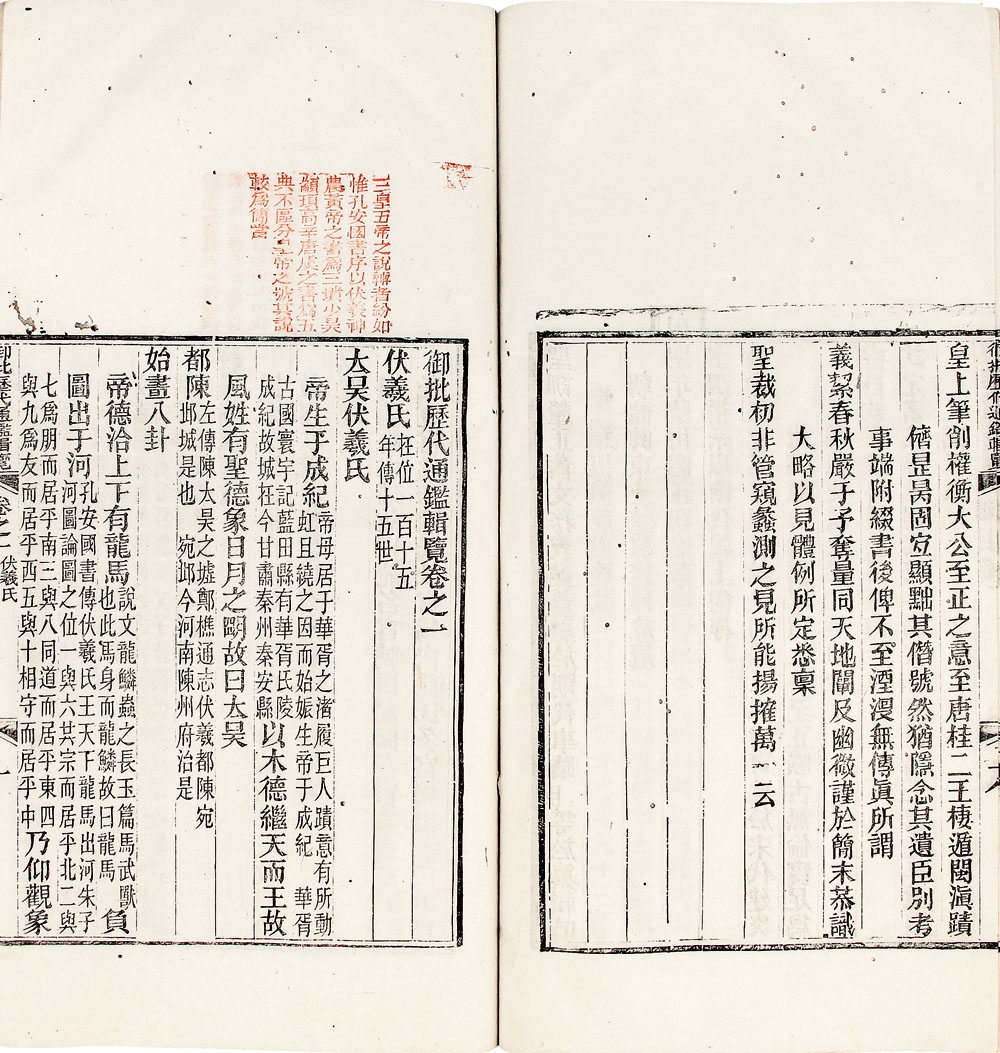 皇上筆削權衡大公至正之意至唐桂二王棲遁閩滇蹟
儕昰昺固宜顯黜其僭號然猶隱念其遺臣別考
事端附綴書後俾不至湮沒無傳眞所謂
義絜春秋嚴于予奪量同天地闡及幽微謹於簡末恭識
大略以見體例所定悉稟
聖裁初非管窺蠡測之見所能揚搉萬一云
三皇五帝之說諸者紛如
惟孔安國書序以伏羲神
農黃帝之書為三墳少昊
顓頊高辛唐虞之書為五
典不區分皇帝之號其說
較為簡當
御批歷代通鑑輯覽卷之一
伏羲氏在位一百十五
年傳十五世
太昊伏羲氏
帝生于成紀帝母居于華胥之渚履巨人蹟意有所動
虹且繞之因而始娠生帝于成紀 華胥
古國寰宇記藍田縣有華胥氏陵
成紀故城在今甘肅秦州秦安縣以木德繼天而王故
風姓有聖德象日月之明故曰太昊
都陳左傳陳太昊之墟鄭樵通志伏羲都陳宛
邱城是也 宛邱今河南陳州府治是
始畫八卦
帝德洽上下有龍馬說文龍鱗蟲之長玉篇馬武獸
也此馬身而龍鱗故曰龍馬負
圖出于河孔安國書傳伏羲氏王天下龍馬出河朱子
河圖論圖之位一與六共宗而居乎北二與
七為朋而居乎南三與八同道而居乎東四
與九為友而居乎西五與十相守而居乎中乃仰觀象
御批歷代通鑑輯覽 卷之一 伏羲氏 一